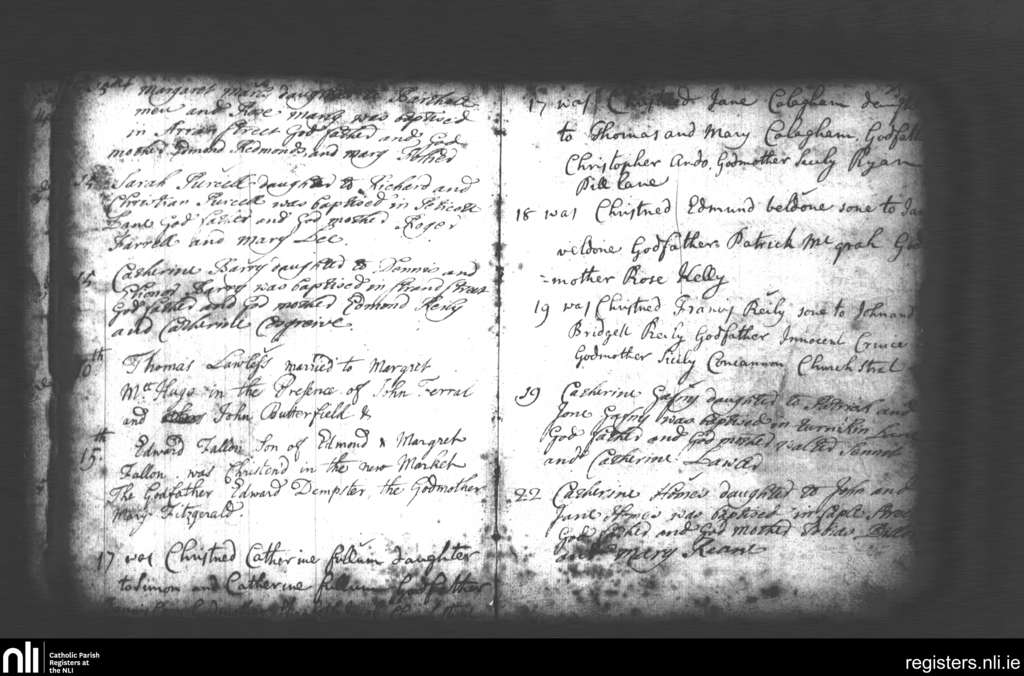 Margaret daughter to
men and Rose was baptised
in Arran Street God father and God
mother Edmond Redmond and mary
15 Sarah Purcell daughter to Richard and
Christian Purcell was baptised in
Lane God father and God mother Roger
Farrell and mary Lee.
15 Catherine Barry daughter to Dennis and
Barry was baptised in Strand Street
God father and God mother Edmond Reily
and Catherine Cosgreive
10th Thomas Lawless married to Margret
Mc Hugo in the Presence of John Ferral
and John Butterfield &
15th Edward Fallon Son of Edmond & Margret
Fallon was Christend in the new Market
The Godfather Edward Dempster, the Godmother
Mary Fitzgerald.
17 was Christned Catherine fullum daughter
to Simon and Catherine fullum Godfather
17 was Christned Jane Calagham
to Thomas and Mary Calagham, Godfath
Christopher Ando, Godmother Sicily Ryan
Pill Lane
18 was Christned Edmund beldone sone to
veldone Godfather Patrick Mc grah
=mother Rose Kelly
19 was Christned Francis Reily sone to John and
Bridgett Reily Godfather Innocent Cruice
Godmother Sicily Concannon Church Street
19 Catherine daughter to Patrick and
Jane was baptised in
God father and God mother
and Catherine Lawler
22 Catherine Homes daughter to John and
Jane Homes was baptised in
God father and God mother
mary Keane
nli
Catholic Parish
Registers at
the NLI
registers.nli.ie